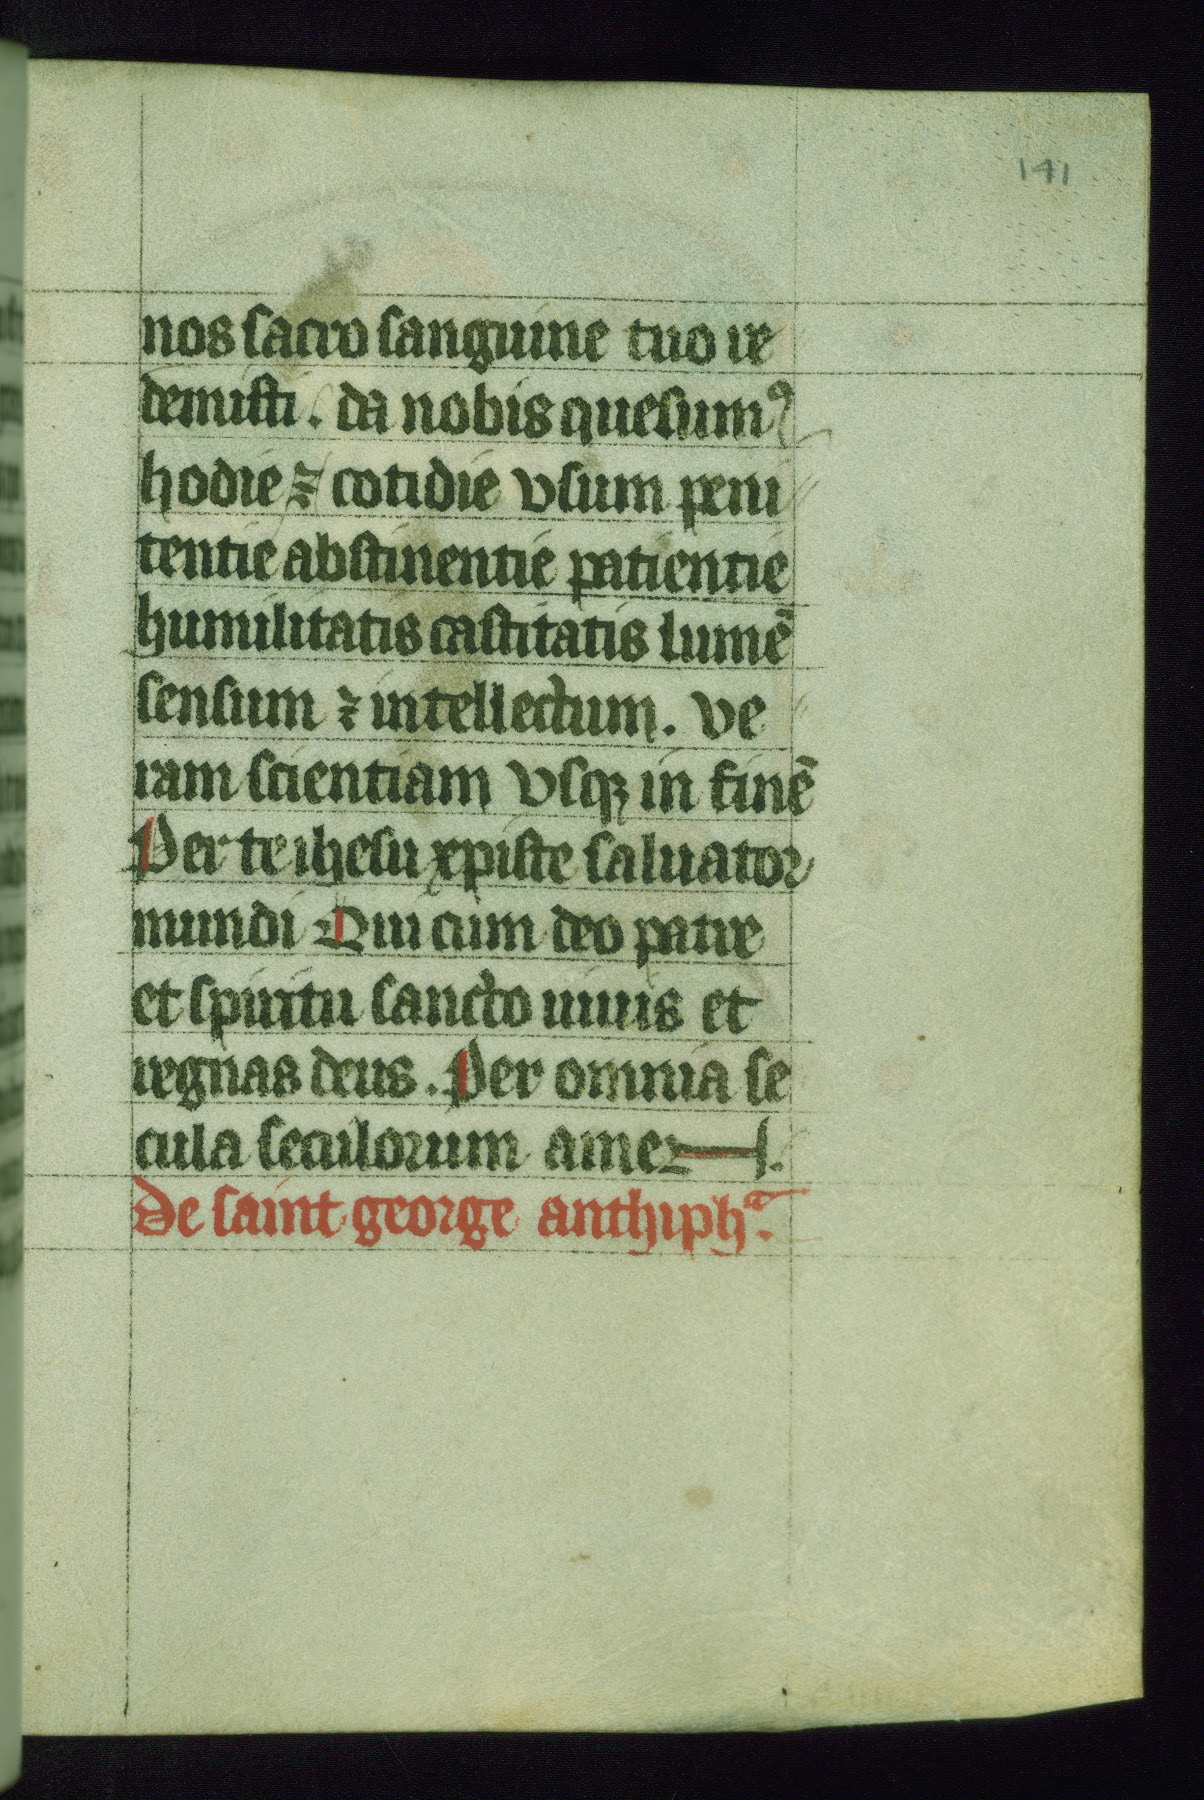 141
nos sacro sanguine tuo re
demisti. da nobis quesumꝰ
hodie ⁊ cotidie vsum peni
tentie abstinentie patientie
humilitatis castitatis lumē
sensum ⁊ intellectum. ve
ram scientiam vsqꝫ in finē
Per te ihesu xpiste saluator
mundi Qui cum deo patre
et spiritu sancto uiuis et
regnas deus. Per omnia se
cula seculorum amen.
De saint george anthiphᵃ.